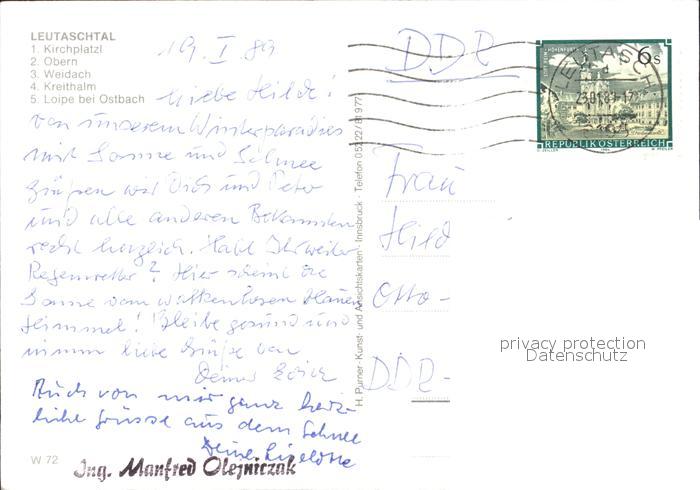 LEUTASCHTAL
1. Kirchplatzl
2. Obern
3. Weidach
4. Kreithalm
5. Loipe bei Ostbach
19. I. 89
Liebe Hilde!
von unserem Winterparadies
mit Sonne und Schnee
grüßen wir Dich und Peter
und alle anderen Bekannten
recht herzlich. Habt Ihr weiter
Regenwetter? Hier scheint die
Sonne vom wolkenlosen blauen
Himmel! Bleibe gesund und
nimm liebe Grüße von
Deiner Erich
Auch von mir ganz herz-
liche Grüsse aus dem Schnee
Deine Liselotte
W 72
Ing. Manfred Olejniczak
H. Purner · Kunst- und Ansichtskarten · Innsbruck · Telefon 05222/81977
DDR
Frau
Hild
Otto-
DDR-
6 S
LEUTASCH
23.01.89-17
REPUBLIK ÖSTERREICH
privacy protection
Datenschutz